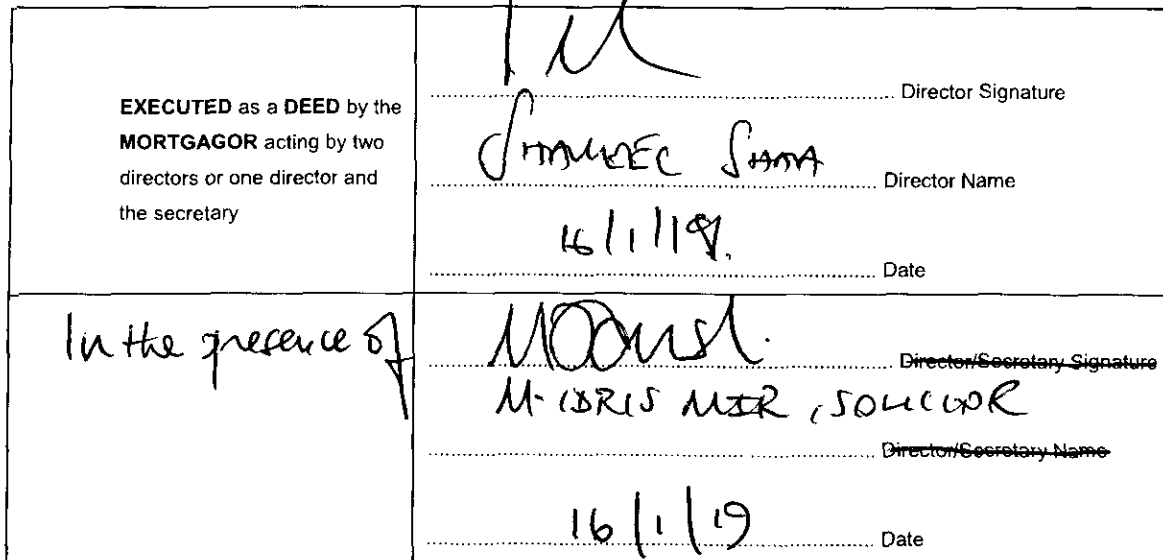 EXECUTED as a DEED by the
MORTGAGOR acting by two
directors or one director and
the secretary
Director Signature
Director Name
16/1/19.
Date
In the presence of
Director/Secretary Signature
M. IDRIS MIR, SOLICITOR
Director/Secretary Name
16/1/19
Date